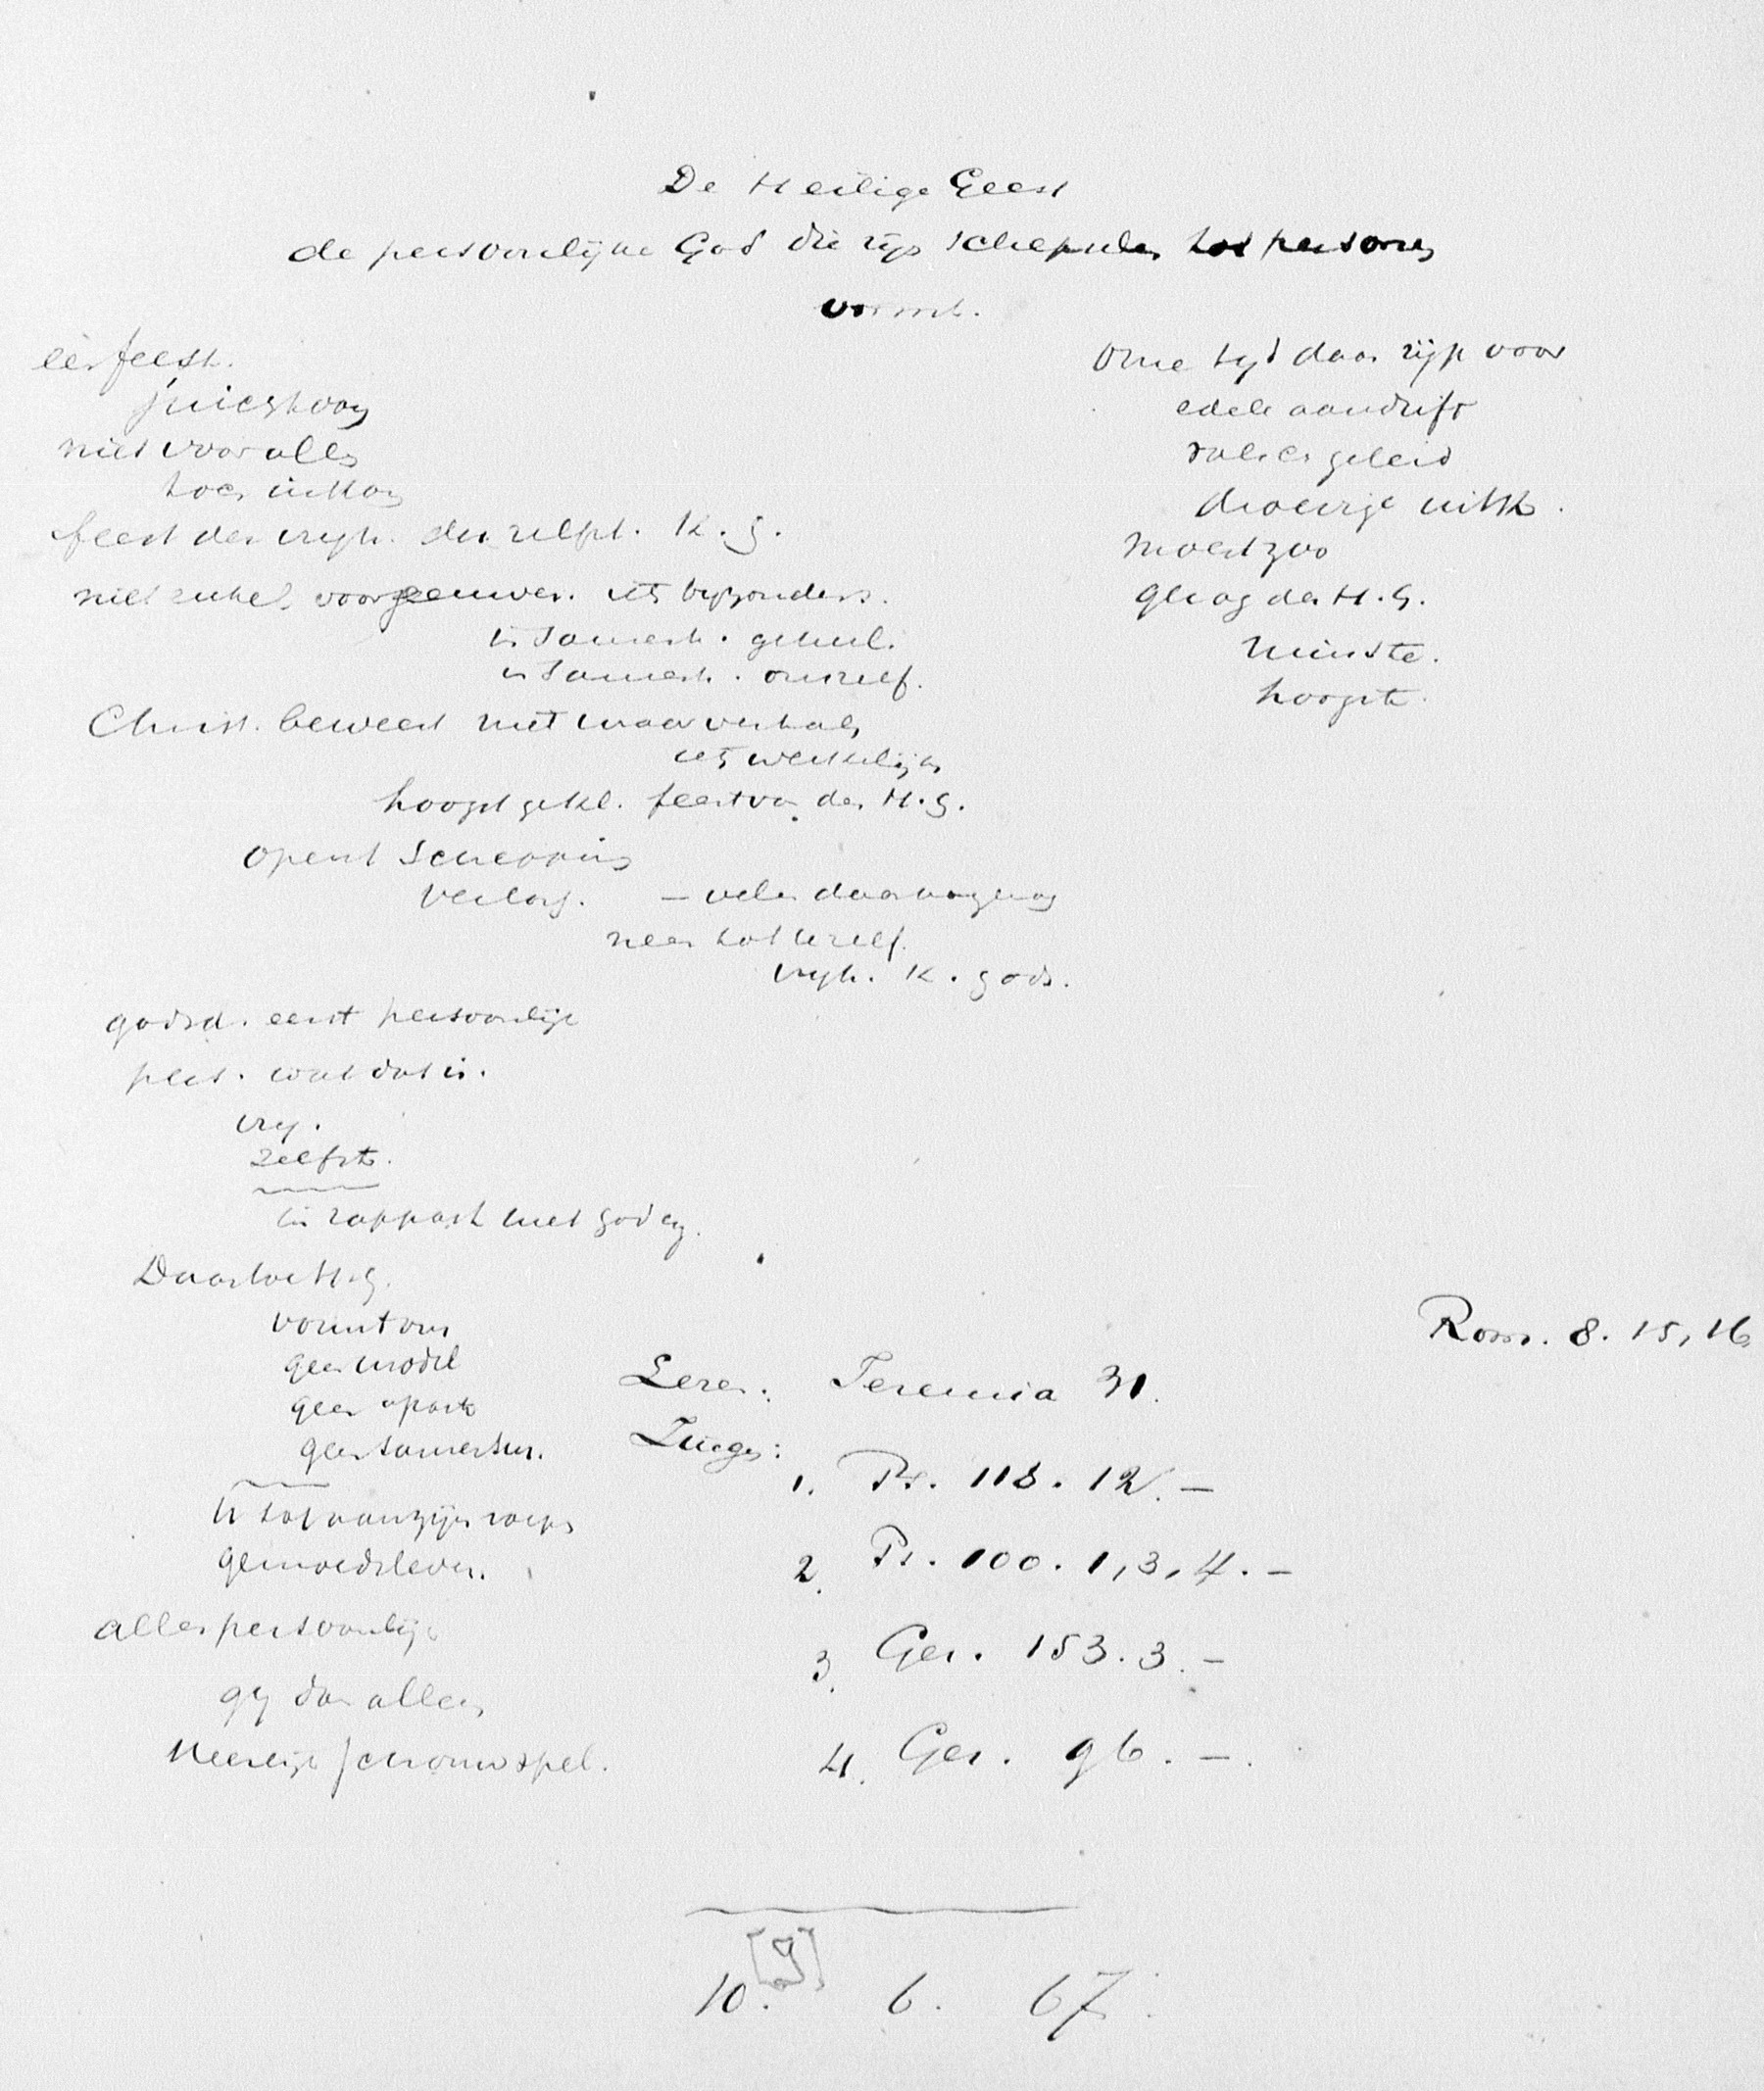 De Heilige Geest
de persoonlijke God die zijn schepselen tot personen
vormt.
een feest.
juichtoon
niet voor allen
toch
feest der vryh. der zelfst. K. G.
niet enkel voor iets byzonders.
in samenh. geheel.
in samenh. onszelf.
Christ. beweert niet maar verhaal
iets werkelijks
hoogst gekl. feest van den H. G.
opent Schepping
verlos. — velen daar
neen tot
vryh. K. gods.
godsd. eerst persoonlijk
pers. wat dat is.
vry.
zelfst.
in rapport met god en
Daartoe H. G.
vormt ons
geen model
geen apart
geen samenstel.
tot aanzijn roept
gemoedsleven.
alles persoonlijk
gy dan allen
Heerlijk schouwspel.
Onze tyd daar rijp voor
edele aandrift
geleid
droevige uitk.
Moest zoo
gen der H. G.
minste.
hoogste.
Rom. 8. 15, 16
Lezen: Jeremia 31.
Zingen:
1. Ps. 118. 12. —
2. Ps. 100. 1, 3, 4. —
3. Gez. 153. 3. —
4. Gez. 96. —.
[9]
10. 6. 67.